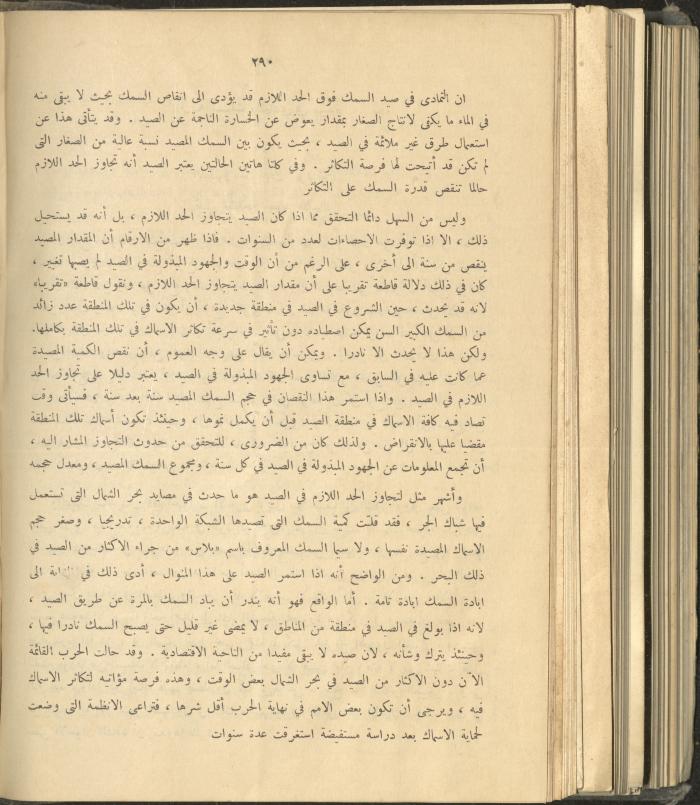 ٢٩٠
ان التمادى في صيد السمك فوق الحد اللازم قد يؤدى الى انقاص السمك بحيث لا يبقى منه
في الماء ما يكفى لانتاج الصغار بمقدار يعوض عن الخسارة الناجمة عن الصيد . وقد يتأتى هذا عن
استعمال طرق غير ملائمة في الصيد ، بحيث يكون بين السمك المصيد نسبة عالية من الصغار التى
لم تكن قد أتيحت لها فرصة التكاثر . وفي كلتا هاتين الحالتين يعتبر الصيد أنه تجاوز الحد اللازم
حالما تنقص قدرة السمك على التكاثر
وليس من السهل دائما التحقق مما اذا كان الصيد يتجاوز الحد اللازم ، بل أنه قد يستحيل
ذلك ، الا اذا توفرت الاحصاءات لعدد من السنوات . فاذا ظهر من الارقام أن المقدار المصيد
ينقص من سنة الى أخرى ، على الرغم من أن الوقت والجهود المبذولة في الصيد لم يصبها تغيير ،
كان في ذلك دلالة قاطعة تقريبا على أن مقدار الصيد يتجاوز الحد اللازم ، ونقول قاطعة «تقريبا»
لانه قد يحدث ، حين الشروع في الصيد في منطقة جديدة ، أن يكون في تلك المنطقة عدد زائد
من السمك الكبير السن يمكن اصطياده دون تأثير في سرعة تكاثر الاسماك في تلك المنطقة بكاملها.
ولكن هذا لا يحدث الا نادرا . ويمكن أن يقال على وجه العموم ، أن نقص الكمية المصيدة
عما كانت عليه في السابق ، مع تساوى الجهود المبذولة في الصيد ، يعتبر دليلا على تجاوز الحد
اللازم في الصيد . واذا استمر هذا النقصان في حجم السمك المصيد سنة بعد سنة ، فسيأتى وقت
تصاد فيه كافة الاسماك في منطقة الصيد قبل أن يكمل نموها ، وحينئذ تكون أسماك تلك المنطقة
مقضيا عليها بالانقراض . ولذلك كان من الضرورى ، للتحقق من حدوث التجاوز المشار اليه ،
أن تجمع المعلومات عن الجهود المبذولة في الصيد في كل سنة ، ومجموع السمك المصيد ، ومعدل حجمه
وأشهر مثل لتجاوز الحد اللازم في الصيد هو ما حدث في مصايد بحر الشمال التى تستعمل
فيها شباك الجر ، فقد قلت كمية السمك التى تصيدها الشبكة الواحدة ، تدريجيا ، وصغر حجم
الاسماك المصيدة نفسها ، ولا سيما السمك المعروف باسم «بلاس» من جراء الاكثار من الصيد في
ذلك البحر . ومن الواضح أنه اذا استمر الصيد على هذا المنوال ، أدى ذلك في الى
ابادة السمك ابادة تامة . أما الواقع فهو أنه يندر أن يباد السمك بالمرة عن طريق الصيد ،
لانه اذا بولغ في الصيد في منطقة من المناطق ، لا يمضى غير قليل حتى يصبح السمك نادرا فيها ،
وحينئذ يترك وشأنه ، لان صيده لا يبقى مفيدا من الناحية الاقتصادية . وقد حالت الحرب القائمة
الآن دون الاكثار من الصيد في بحر الشمال بعض الوقت ، وهذه فرصة مؤاتيه لتكاثر الاسماك
فيه ، ويرجى أن تكون بعض الامم في نهاية الحرب أقل شرها ، فتراعى الانظمة التى وضعت
لحماية الاسماك بعد دراسة مستفيضة استغرقت عدة سنوات